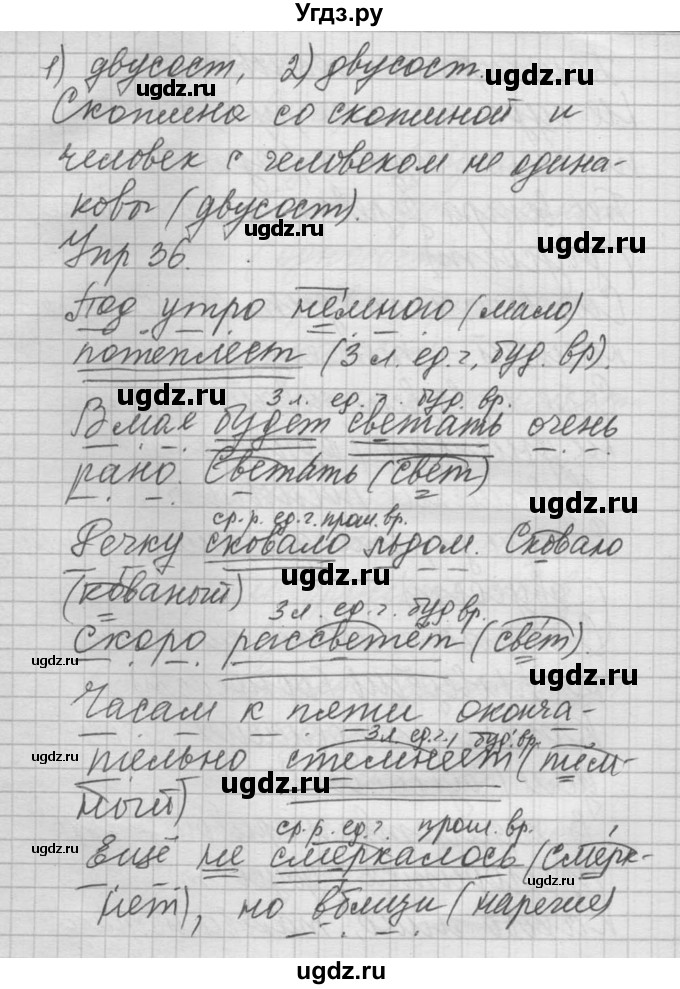 Угдз.ру
1) двусост, 2) двусост.
ugdz.ru
Скотина со скотиной и
человек с человеком не одина-
ugdz.ru
ковы (двусост).
ugdz.ru
ugdz.ru
Упр 36.
Под утро немного (мало)
потеплеет (3 л. ед. ч, буд. вр).
ugdz.ru
3 л. ед. ч. буд. вр.
В мае будет светать очень
рано. Светать (свет)
ugdz.ru
ср. р. ед. ч. прош. вр.
Речку сковало льдом. Сковало
ugdz.ru
(кованый)
3 л. ед. ч. буд вр.
Скоро рассветёт (свет).
ugdz.ru
ugdz.ru
Часам к пяти оконча-
3 л. ед. ч., буд. вр.
тельно стемнеет (тём-
ugdz.ru
ugdz.ru
ный)
ср. р. ед. ч. прош. вр.
Ещё не смеркалось (смерк-
ugdz.ru
ugdz.ru
нет), но вблизи (наречие)
ugdz.ru